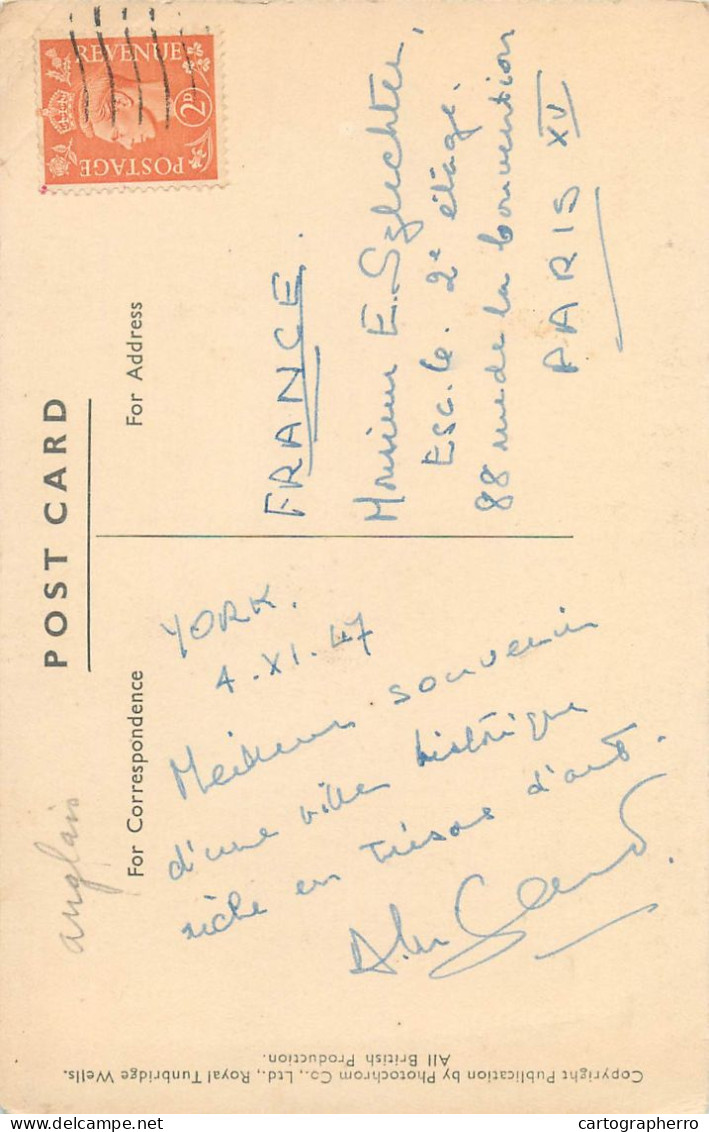 POST CARD
For Correspondence
For Address
REVENUE
2D
POSTAGE
anglais
YORK.
4.XI.47
Meilleur souvenir
d'une ville historique
riche en trésors d'art.
FRANCE.
Monsieur E. Szlechter,
Esc. 6. 2e étage.
88 rue de la Convention
PARIS XV
Copyright Publication by Photochrom Co., Ltd., Royal Tunbridge Wells.
All British Production.
cartographerro